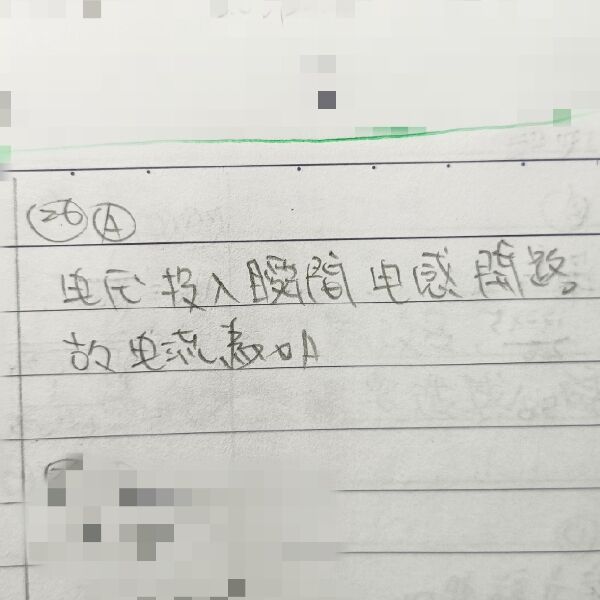 26 A
电压投入瞬間电感開路。
故电流表0A